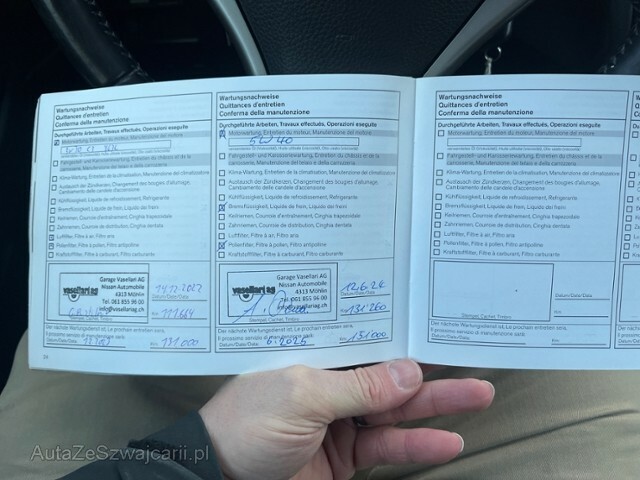 Wartungsnachweise
Quittances d'entretien
Conferma della manutenzione
Durchgeführte Arbeiten, Travaux effectués, Operazioni eseguite
Motorwartung, Entretien du moteur, Manutenzione del motore
Fahrgestell- und Karosseriewartung, Entretien du châssis et de la carrosserie
Klima-Wartung, Entretien de la climatisation, Manutenzione del climatizzatore
Austausch der Zündkerzen, Changement des bougies d'allumage,
Cambiamento delle candele d'accensione
Kühlflüssigkeit, Liquide de refroidissement, Refrigerante
Bremsflüssigkeit, Liquide de frein, Liquido dei freni
Keilriemen, Courroie d'entraînement, Cinghia trapezoidale
Zahnriemen, Courroie de distribution, Cinghia dentata
Luftfilter, Filtre à air, Filtro aria
Pollenfilter, Filtre à pollen, Filtro antipolline
Kraftstofffilter, Filtre à carburant, Filtro carburante
vasellari ag
Garage Vasellari AG
Nissan Automobile
4313 Möhlin
Tel. 061 855 96 00
info@vasellariag.ch
14.12.2022
Datum/Date/Data
Km
Stempel, Cachet, Timbro
Der nächste Wartungsdienst ist, Le prochain entretien sera,
Il prossimo servizio di manutenzione sarà:
Datum/Date/Data
Km 131.000
Wartungsnachweise
Quittances d'entretien
Conferma della manutenzione
Durchgeführte Arbeiten, Travaux effectués, Operazioni eseguite
Motorwartung, Entretien du moteur, Manutenzione del motore
5W40
Klima-Wartung, Entretien de la climatisation, Manutenzione del climatizzatore
Austausch der Zündkerzen, Changement des bougies d'allumage,
Cambiamento delle candele d'accensione
Kühlflüssigkeit, Liquide de refroidissement, Refrigerante
Bremsflüssigkeit, Liquide de frein, Liquido dei freni
Keilriemen, Courroie d'entraînement, Cinghia trapezoidale
Zahnriemen, Courroie de distribution, Cinghia dentata
Luftfilter, Filtre à air, Filtro aria
Pollenfilter, Filtre à pollen, Filtro antipolline
Kraftstofffilter, Filtre à carburant, Filtro carburante
vasellari ag
Garage Vasellari AG
Nissan Automobile
4313 Möhlin
Tel. 061 855 96 00
info@vasellariag.ch
12.6.24
Datum/Date/Data
Km 131'260
Stempel, Cachet, Timbro
Der nächste Wartungsdienst ist, Le prochain entretien sera,
Il prossimo servizio di manutenzione sarà:
Datum/Date/Data 6.2025
Km 151.000
Wartungsnachweise
Quittances d'entretien
Conferma della manutenzione
Durchgeführte Arbeiten, Travaux effectués, Operazioni eseguite
Motorwartung, Entretien du moteur, Manutenzione del motore
Klima-Wartung, Entretien de la climatisation, Manutenzione del climatizzatore
Austausch der Zündkerzen, Changement des bougies d'allumage,
Cambiamento delle candele d'accensione
Kühlflüssigkeit, Liquide de refroidissement, Refrigerante
Bremsflüssigkeit, Liquide de frein, Liquido dei freni
Keilriemen, Courroie d'entraînement, Cinghia trapezoidale
Zahnriemen, Courroie de distribution, Cinghia dentata
Luftfilter, Filtre à air, Filtro aria
Pollenfilter, Filtre à pollen, Filtro antipolline
Kraftstofffilter, Filtre à carburant, Filtro carburante
Datum/Date/Data
Km
Stempel, Cachet, Timbro
Der nächste Wartungsdienst ist, Le prochain entretien sera,
Il prossimo servizio di manutenzione sarà:
Datum/Date/Data
Km
AutaZeSzwajcarii.pl